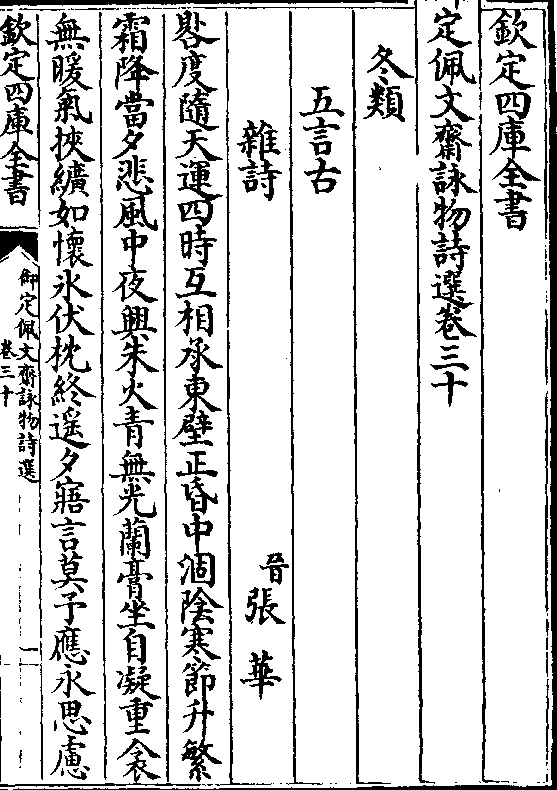 欽定四庫全書
定佩文齋詠物詩選卷三十
冬類
五言古
雜詩　晉張華
晷度隨天運四時互相承東壁正昏中涸陰寒節升繁
霜降當夕悲風中夜興朱火青無光蘭膏坐自凝重衾
無暖氣挾纊如懷氷伏枕終遥夕寤言莫予應永思慮
欽定四庫全書
御定佩文齋詠物詩選
卷三十
一